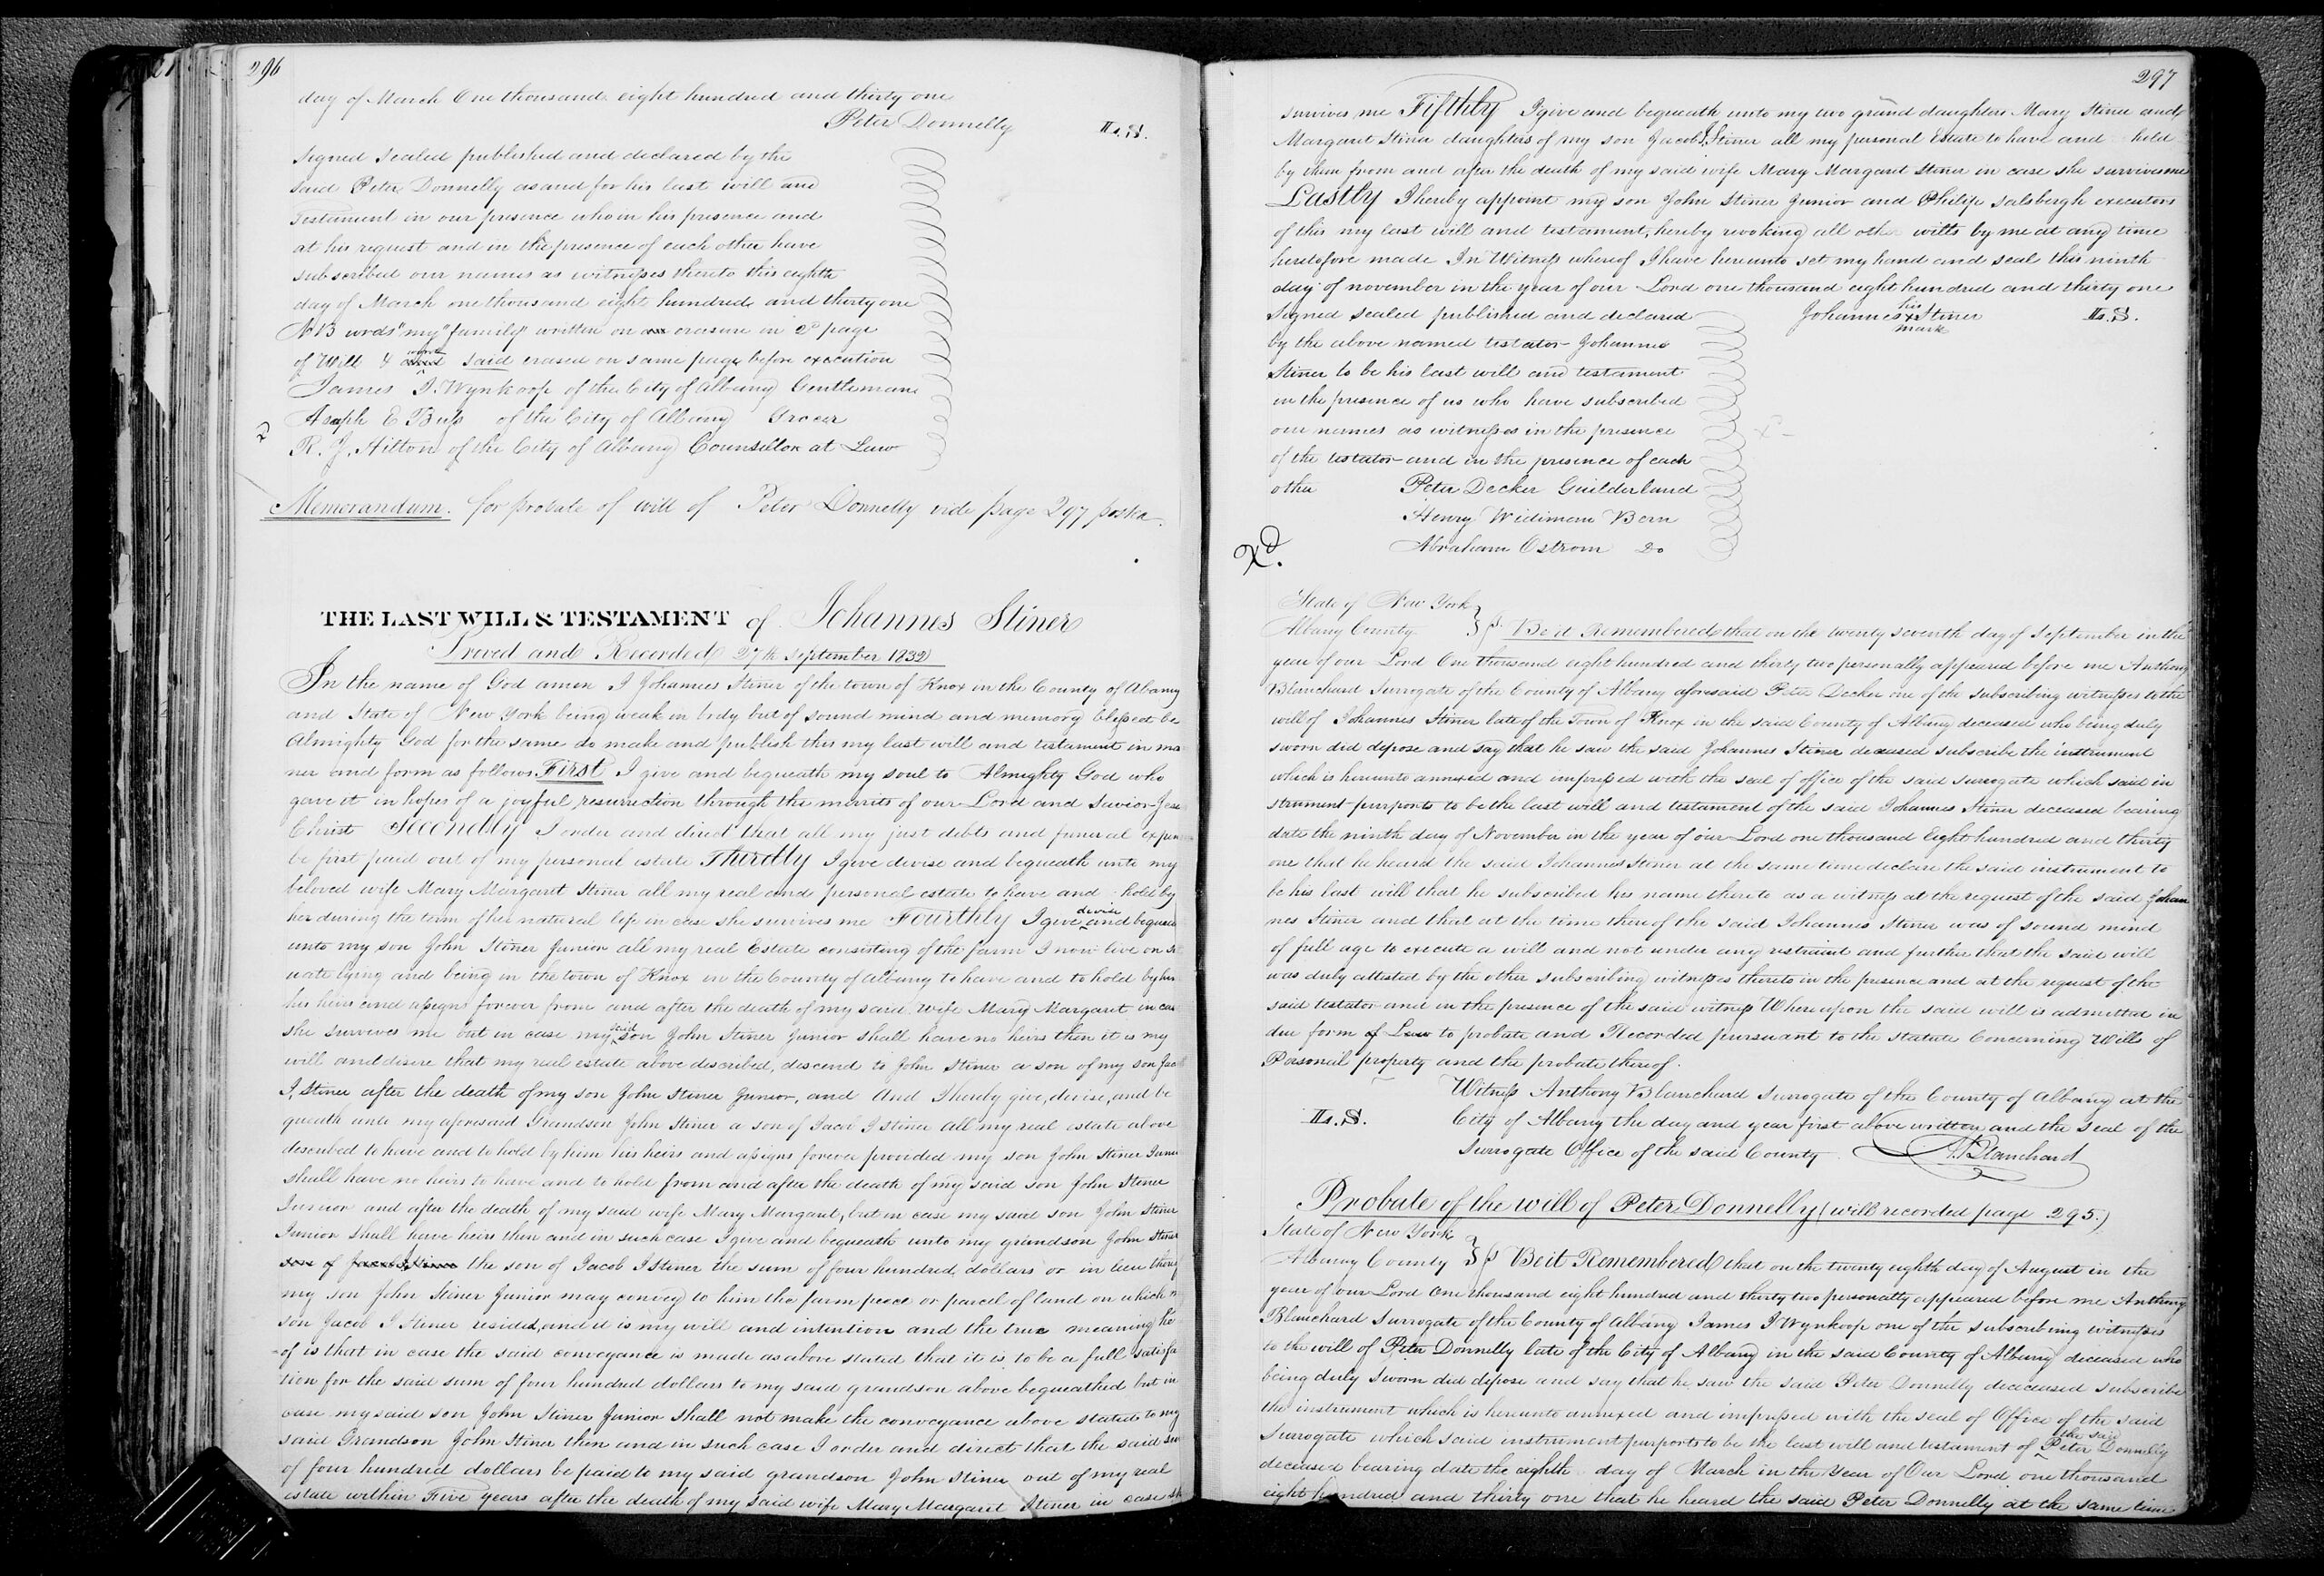 296
day of March One thousand eight hundred and thirty one
Peter Donnelly L.S.
Signed Sealed published and declared by the
said Peter Donnelly as and for his last will and
Testament in our presence who in his presence and
at his request and in the presence of each other have
subscribed our names as witnesses thereto this eighth
day of March one thousand eight hundred and thirty one
NB words "my" "family" written on an erasure in 2d page
of Will & word said erased on same page before execution
James J. Wynkoop of the City of Albany Gentleman
Asaph E Buss of the City of Albany Grocer
R. J. Hilton of the City of Albany Counsellor at Law
Memorandum. for probate of will of Peter Donnelly vide page 297 postea
THE LAST WILL & TESTAMENT of Johannes Stiner
Proved and Recorded 27th September 1832
In the name of God amen I Johannes Stiner of the town of Knox in the County of Abany
and State of New York being weak in body but of sound mind and memory blessed be
Almighty God for the same do make and publish this my last will and testament in ma
ner and form as follows First I give and bequeath my soul to Almighty God who
gave it in hopes of a joyful resurrection through the merrits of our Lord and Savior Jesu
Christ Secondly I order and direct that all my just debts and funeral expen
be first paid out of my personal estate Thirdly I give devise and bequeath unto my
beloved wife Mary Margaret Stiner all my real and personal estate to have and hold by
her during the term of her natural life in case she survives me Fourthly I give devise and bequea
unto my son John Stiner Junior all my real Estate consisting of the farm I now live on sit
uate lying and being in the town of Knox in the County of albany to have and to hold by him
his heirs and assigns forever from and after the death of my said wife Mary Margaret in case
she survives me but in case my said son John Stiner Junior shall have no heirs then it is my
will and desire that my real estate above described, descend to John Stiner a son of my son Jac
I, Stiner after the death of my son John Stiner Junior, and And I hereby give, devise, and be
queath unto my aforesaid Grandson John Stiner a son of Jacob I Stiner all my real estate above
described to have and to hold by him his heirs and assigns forever provided my son John Stiner Junior
shall have no heirs to have and to hold from and after the death of my said son John Stiner
Junior and after the death of my said wife Mary Margaret, but in case my said son John Stiner
Junior shall have heirs then and in such case I give and bequeath unto my grandson John Stiner
son of Jacob I Stiner the son of Jacob I Stiner the sum of four hundred dollars or in lieu thereof
my son John Stiner Junior may convey to him the farm peace or parcel of land on which m
son Jacob I Stiner resided, and it is my will and intention and the true meaning he
of is that in case the said conveyance is made as above stated that it is to be a full satisfa
tion for the said sum of four hundred dollars to my said grandson above bequeathed but in
case my said son John Stiner Junior shall not make the conveyance above stated to my
said Grandson John Stiner then and in such case I order and direct that the said sum
of four hundred dollars be paid to my said grandson John Stiner out of my real
estate within Five years after the death of my said wife Mary Margaret Stiner in case sh
297
survives me Fifthly I give and bequeath unto my two grand daughters Mary Stiner and
Margaret Stiner daughters of my son Jacob I. Stiner all my personal Estate to have and hold
by them from and after the death of my said wife Mary Margaret Stiner in case she survives me
Lastly I hereby appoint my son John Stiner Junior and Philip Salsbergh executors
of this my last will and testament, hereby revoking all other wills by me at any time
heretofore made In Witness whereof I have hereunto set my hand and seal this ninth
day of november in the year of our Lord one thousand eight hundred and thirty one
Signed Sealed published and declared Johannes his + mark Stiner L.S.
by the above named testator Johannes
Stiner to be his last will and testament
in the presence of us who have subscribed
our names as witnesses in the presence
of the testator and in the presence of each
other Peter Decker Guilderland
Henry Widimam Bern
Abraham Ostrom Do
State of New York
Albany County } ss. Be it Remembered that on the twenty seventh day of September in the
year of our Lord One thousand eight hundred and thirty two personally appeared before me Anthony
Blanchard Surrogate of the County of Albany aforesaid Peter Decker one of the subscribing witnesses to the
will of Johannes Stiner late of the Town of Knox in the said County of Albany deceased who being duly
sworn did depose and say that he saw the said Johannes Stiner deceased subscribe the instrument
which is hereunto annexed and impressed with the seal of office of the said surrogate which said in
strument purports to be the last will and testament of the said Johannes Stiner deceased bearing
date the ninth day of November in the year of our Lord one thousand Eight hundred and thirty
one that he heard the said Johannes Stiner at the same time declare the said instrument to
be his last will that he subscribed his name thereto as a witness at the request of the said Johan
nes Stiner and that at the time thereof the said Johannes Stiner was of sound mind
of full age to execute a will and not under any restraint and further that the said will
was duly attested by the other subscribing witnesses thereto in the presence and at the request of the
said testator and in the presence of the said witness Whereupon the said will is admitted in
due form of Law to probate and Recorded pursuant to the statute Concerning Wills of
Personal property and the probate thereof.
Witness Anthony Blanchard Surrogate of the County of Albany at the
L.S. City of Albany the day and year first above written and the Seal of the
Surrogate Office of the said County. A. Blanchard
Probate of the will of Peter Donnelly (will recorded page 295.)
State of New York
Albany County } ss Be it Remembered that on the twenty eighth day of August in the
year of our Lord One thousand eight hundred and thirty two personally appeared before me Anthony
Blanchard Surrogate of the County of Albany James J Wynkoop one of the subscribing witnesses
to the will of Peter Donnelly late of the City of Albany in the said County of Albany deceased who
being duly sworn did depose and say that he saw the said Peter Donnelly dececeased subscribe
the instrument which is hereunto annexed and impressed with the seal of Office of the said
Surrogate which said instrument purports to be the last will and testament of the said Peter Donnelly
deceased bearing date the eighth day of March in the Year of Our Lord one thousand
eight hundred and thirty one that he heard the said Peter Donnelly at the same time